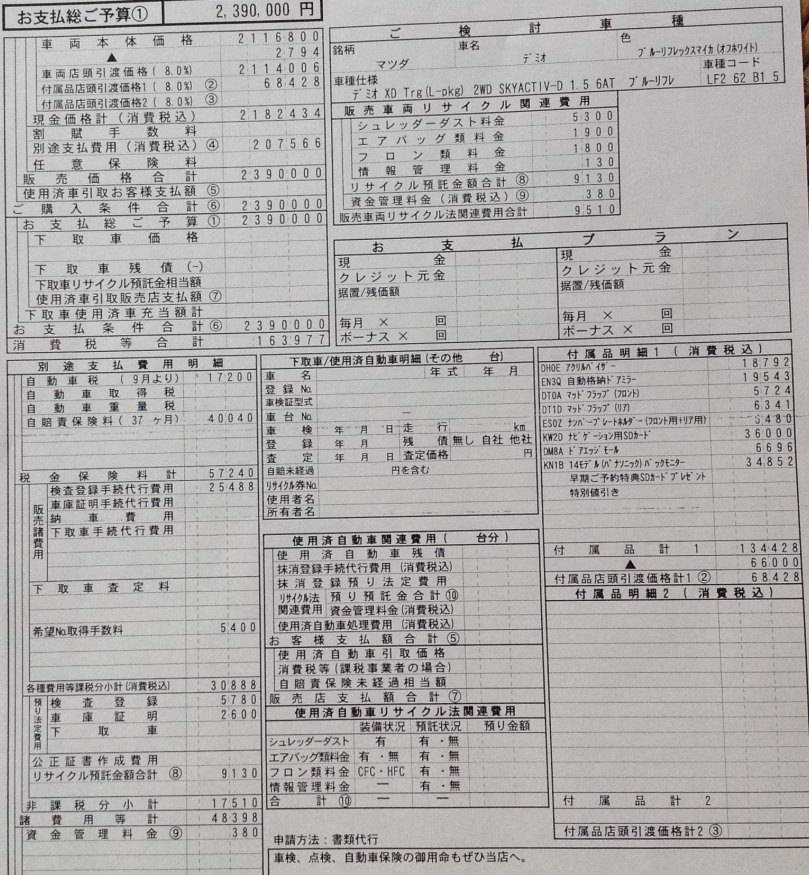 お支払総ご予算① 2,390,000 円
車両本体価格 2116800
▲ 2794
車両店頭引渡価格( 8.0%) 2114006
付属品店頭引渡価格1( 8.0%) ② 68428
付属品店頭引渡価格2( 8.0%) ③
現金価格計(消費税込) 2182434
割賦手数料
別途支払費用(消費税込) ④ 207566
任意保険料
販売価格合計 2390000
使用済車引取お客様支払額 ⑤
ご購入条件合計 ⑥ 2390000
お支払総ご予算 ① 2390000
下取車価格
下取車残債(-)
下取車リサイクル預託金相当額
使用済車引取販売店支払額 ⑦
下取車使用済車充当額計
お支払条件合計 ⑥ 2390000
消費税等合計 163977
ご検討車種
銘柄 車名 色
マツダ デミオ ブルーリフレックスマイカ(オフホワイト)
車種仕様 車種コード
デミオ XD Trg(L-pkg) 2WD SKYACTIV-D 1.5 6AT ブルーリフレ LF2 62 B1 5
販売車両リサイクル関連費用
シュレッダーダスト料金 5300
エアバッグ類料金 1900
フロン類料金 1800
情報管理料金 130
リサイクル預託金額合計 ⑧ 9130
資金管理料金(消費税込) ⑨ 380
販売車両リサイクル法関連費用合計 9510
お支払プラン
現金 現金
クレジット元金 クレジット元金
据置/残価額 据置/残価額
毎月 × 回 毎月 × 回
ボーナス × 回 ボーナス × 回
別途支払費用明細
自動車税 (9月より) 17200
自動車取得税
自動車重量税
自賠責保険料( 37 ヶ月) 40040
税金保険料計 57240
販売諸費用
検査登録手続代行費用 25488
車庫証明手続代行費用
納車費用
下取車手続代行費用
下取車査定料
希望No取得手数料 5400
各種費用等課税分小計(消費税込) 30888
預り法定費用
検査登録 5780
車庫証明 2600
下取車
公正証書作成費用
リサイクル預託金額合計 ⑧ 9130
非課税分小計 17510
諸費用等計 48398
資金管理料金 ⑨ 380
下取車/使用済自動車明細(その他 台)
車名 年式 年 月
登録No.
車検証型式
車台No. ー
車検 年 月 日 走行 km
登録 年 月 残債 無し 自社 他社
査定 年 月 日 査定価格 円
自賠未経過 円を含む
リサイクル券No.
使用者名
所有者名
使用済自動車関連費用( 台分)
使用済自動車残債
抹消登録手続代行費用 (消費税込)
抹消登録預り法定費用
リサイクル法 預り預託金合計 ⑩
関連費用 資金管理料金(消費税込)
使用済自動車処理費用(消費税込)
お客様支払額合計 ⑤
使用済自動車引取価格
消費税等(課税事業者の場合)
自賠責保険未経過相当額
販売店支払額合計 ⑦
使用済自動車リサイクル法関連費用
装備状況 預託状況 預り金額
シュレッダーダスト 有 有・無
エアバッグ類料金 有・無 有・無
フロン類料金 CFC・HFC 有・無
情報管理料金 ー 有・無
合計⑩ ー ー
申請方法:書類代行
車検、点検、自動車保険の御用命もぜひ当店へ。
付属品明細1(消費税込)
DH0E アクリルバイザー 18792
EN3Q 自動格納ドアミラー 19543
DT0A マッドフラップ(フロント) 5724
DT1D マッドフラップ(リア) 6341
ES0Z ナンバープレートホルダー(フロント用+リア用) 6480
KW2D ナビゲーション用SDカード 36000
DM8A ドアエッジモール 6696
KN1B 14モデル(パナソニック)バックモニター 34852
早期ご予約特典SDカードプレゼント
特別値引き
付属品計1 134428
▲ 66000
付属品店頭引渡価格計1 ② 68428
付属品明細2(消費税込)
付属品計2
付属品店頭引渡価格計2 ③